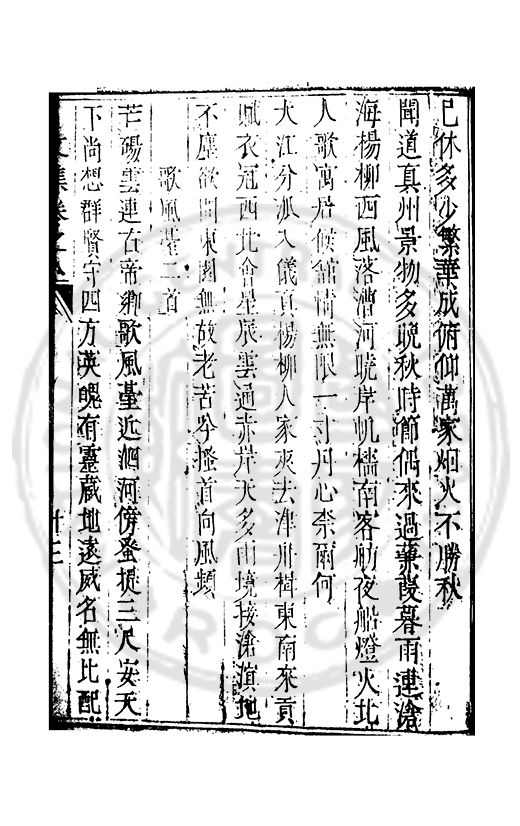 已休多少繁華成俯仰萬家烟火不勝秋
聞道真州景物多晚秋時節偶來過蒹葭暮雨連滄
海楊柳西風落漕河曉岸帆檣南客舫夜船燈火北
人歌寓居候館情無限一寸丹心柰爾何
大江分派入儀真楊柳人家夾去津川楫東南來貢
賦衣冠西北會星辰雲通赤岸天多雨境接滄溟地
不塵欲問東園無故老苦吟搔首向風頻
歌風臺二首
芒碭雲連古帝鄉歌風臺近泗河傍登提三尺安天
下尚想群賢守四方英魄有靈藏地遠威名無比配
文集卷之
十三